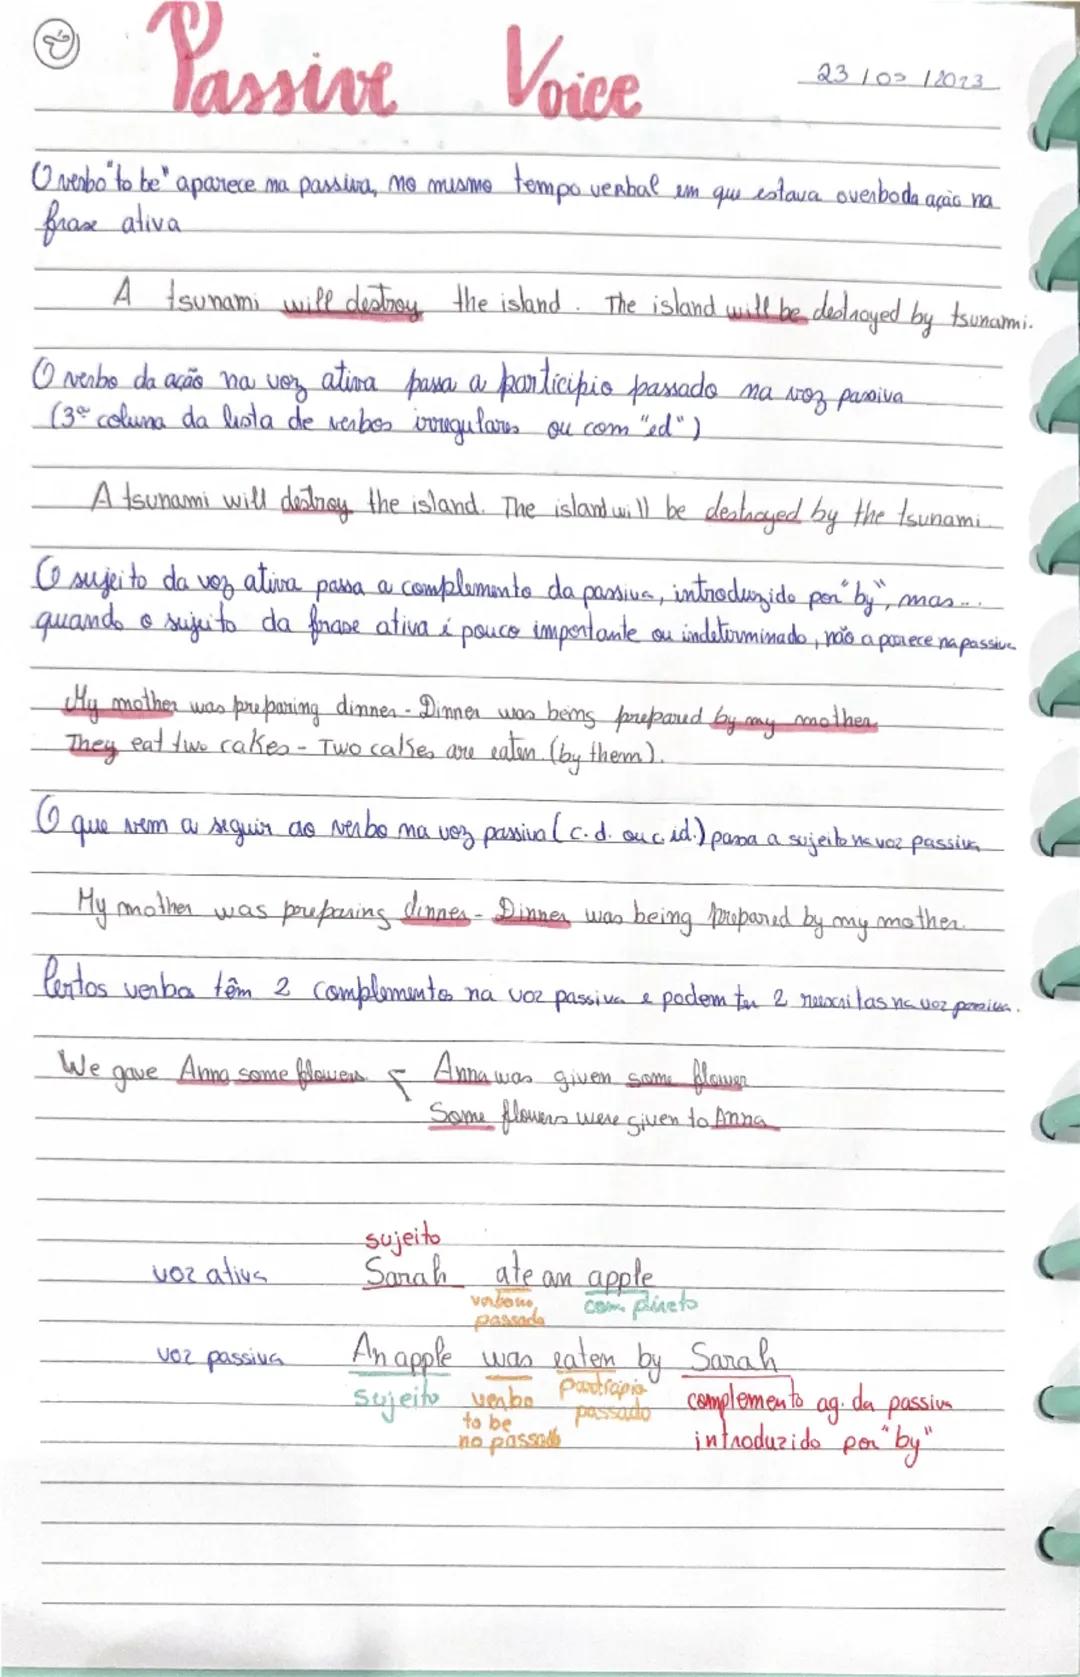 Passive Voice
23/03/2023
O verbo "to be" aparece na passiva, no mesmo tempo verbal em que estava o verbo da ação na
frase ativa
A tsunami will destroy the island. The island will be destroyed by tsunami.
O verbo da ação na voz ativa passa a particípio passado na voz passiva
(3ª coluna da lista de verbos irregulares ou com "ed")
A tsunami will destroy the island. The island will be destroyed by the tsunami
O sujeito da voz ativa passa a complemento da passiva, introduzido por "by", mas...
quando o sujeito da frase ativa é pouco importante ou indeterminado, não aparece na passiva
My mother was preparing dinner - Dinner was being prepared by my mother.
They eat two cakes - Two cakes are eaten (by them).
O que vem a seguir ao verbo na voz passiva (c.d. ou c.id.) passa a sujeito na voz passiva
My mother was preparing dinner - Dinner was being prepared by my mother.
Certos verbos têm 2 complementos na voz passiva e podem ter 2 reescritas na voz passiva.
We gave Anna some flowers < Anna was given some flower
Some flowers were given to Anna
sujeito
voz ativa Sarah ate an apple
verbo no com. direto
passado
voz passiva An apple was eaten by Sarah
sujeito verbo particípio complemento ag. da passiva
to be passado introduzido por "by"
no passado